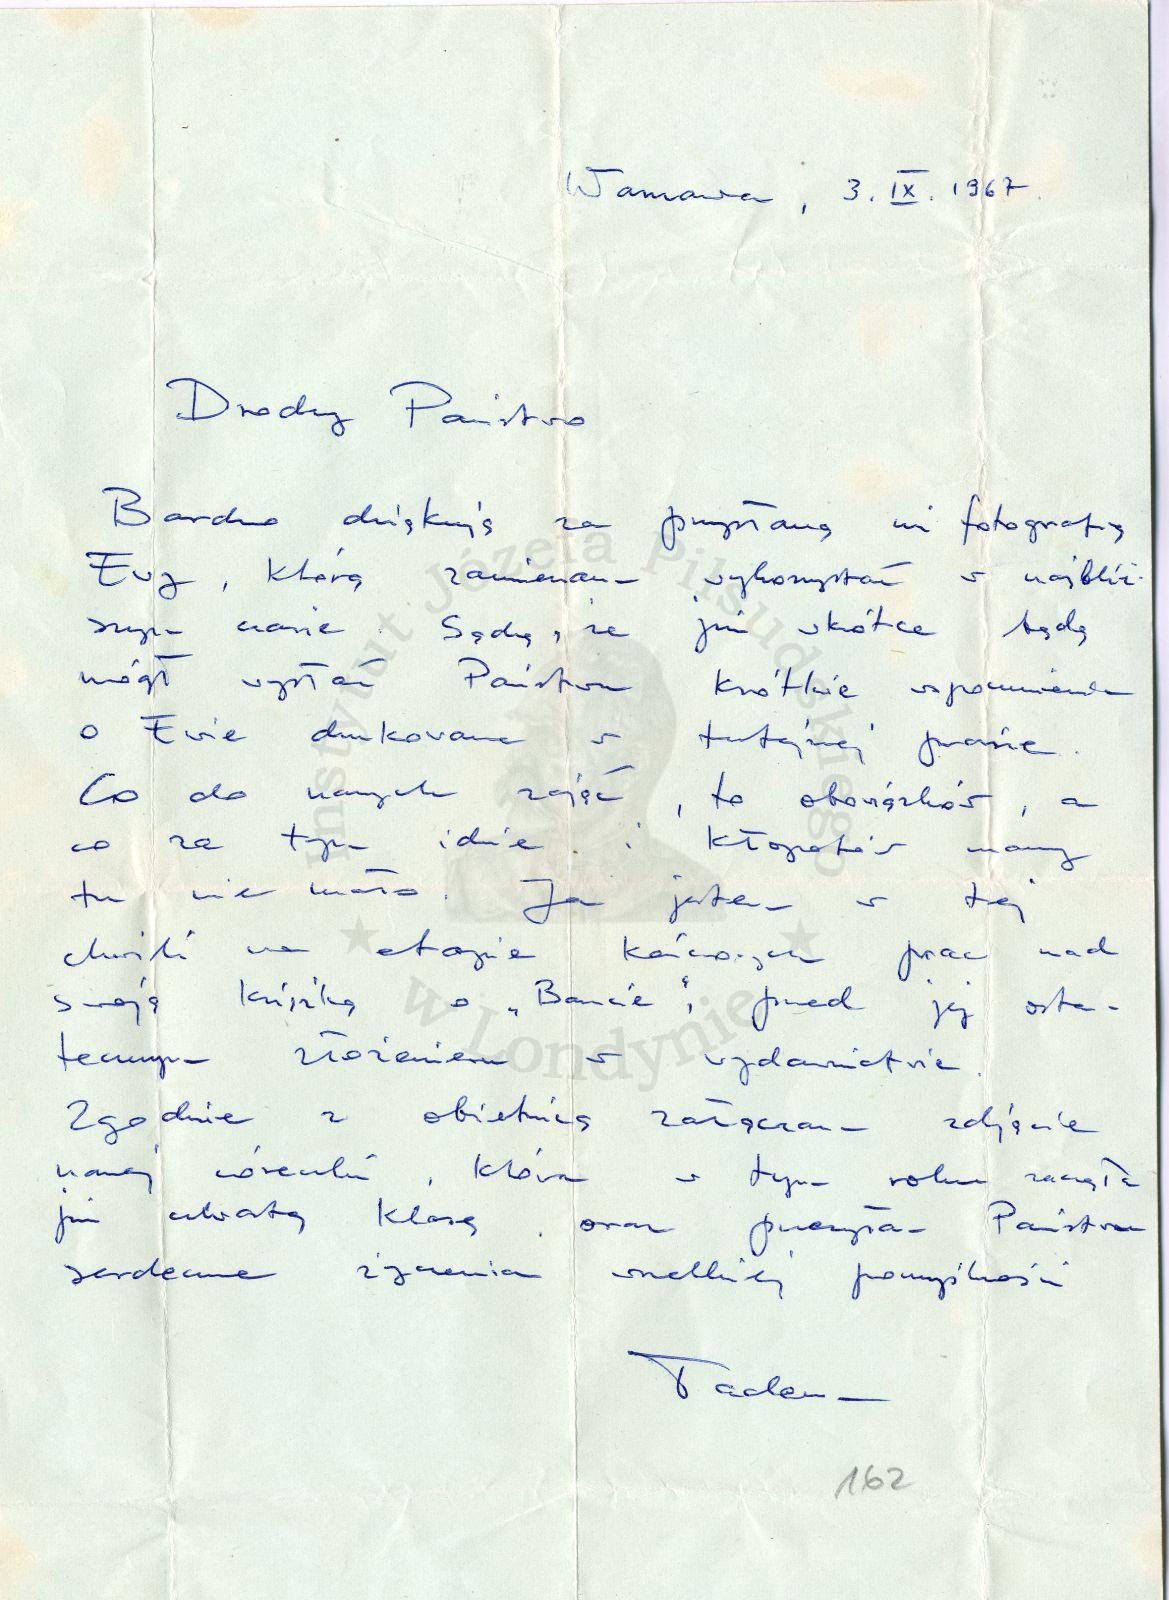 Warszawa, 3. IX. 1967.
Drodzy Państwo
Bardzo dziękuję za przysłaną mi fotografię
Ewy, którą zamierzam wykorzystać w najbliż-
szym czasie. Sądzę, że już wkrótce będę
mógł wysłać Państwu krótkie wspomnienie
o Ewie drukowane w tutejszej prasie.
Co do naszych zajęć, to obowiązków, a
co za tym idzie i kłopotów mamy
tu nie mało. Ja jestem w tej
chwili na etapie końcowych prac nad
swoją książką o „Baszcie", przed jej osta-
tecznym złożeniem w wydawnictwie.
Zgodnie z obietnicą załączam zdjęcie
naszej córeczki, która w tym roku zaczęła
już czwartą klasę, oraz przesyłam Państwu
serdeczne życzenia wszelkiej pomyślności
Tadeusz
162
Instytut Józefa Piłsudskiego
w Londynie